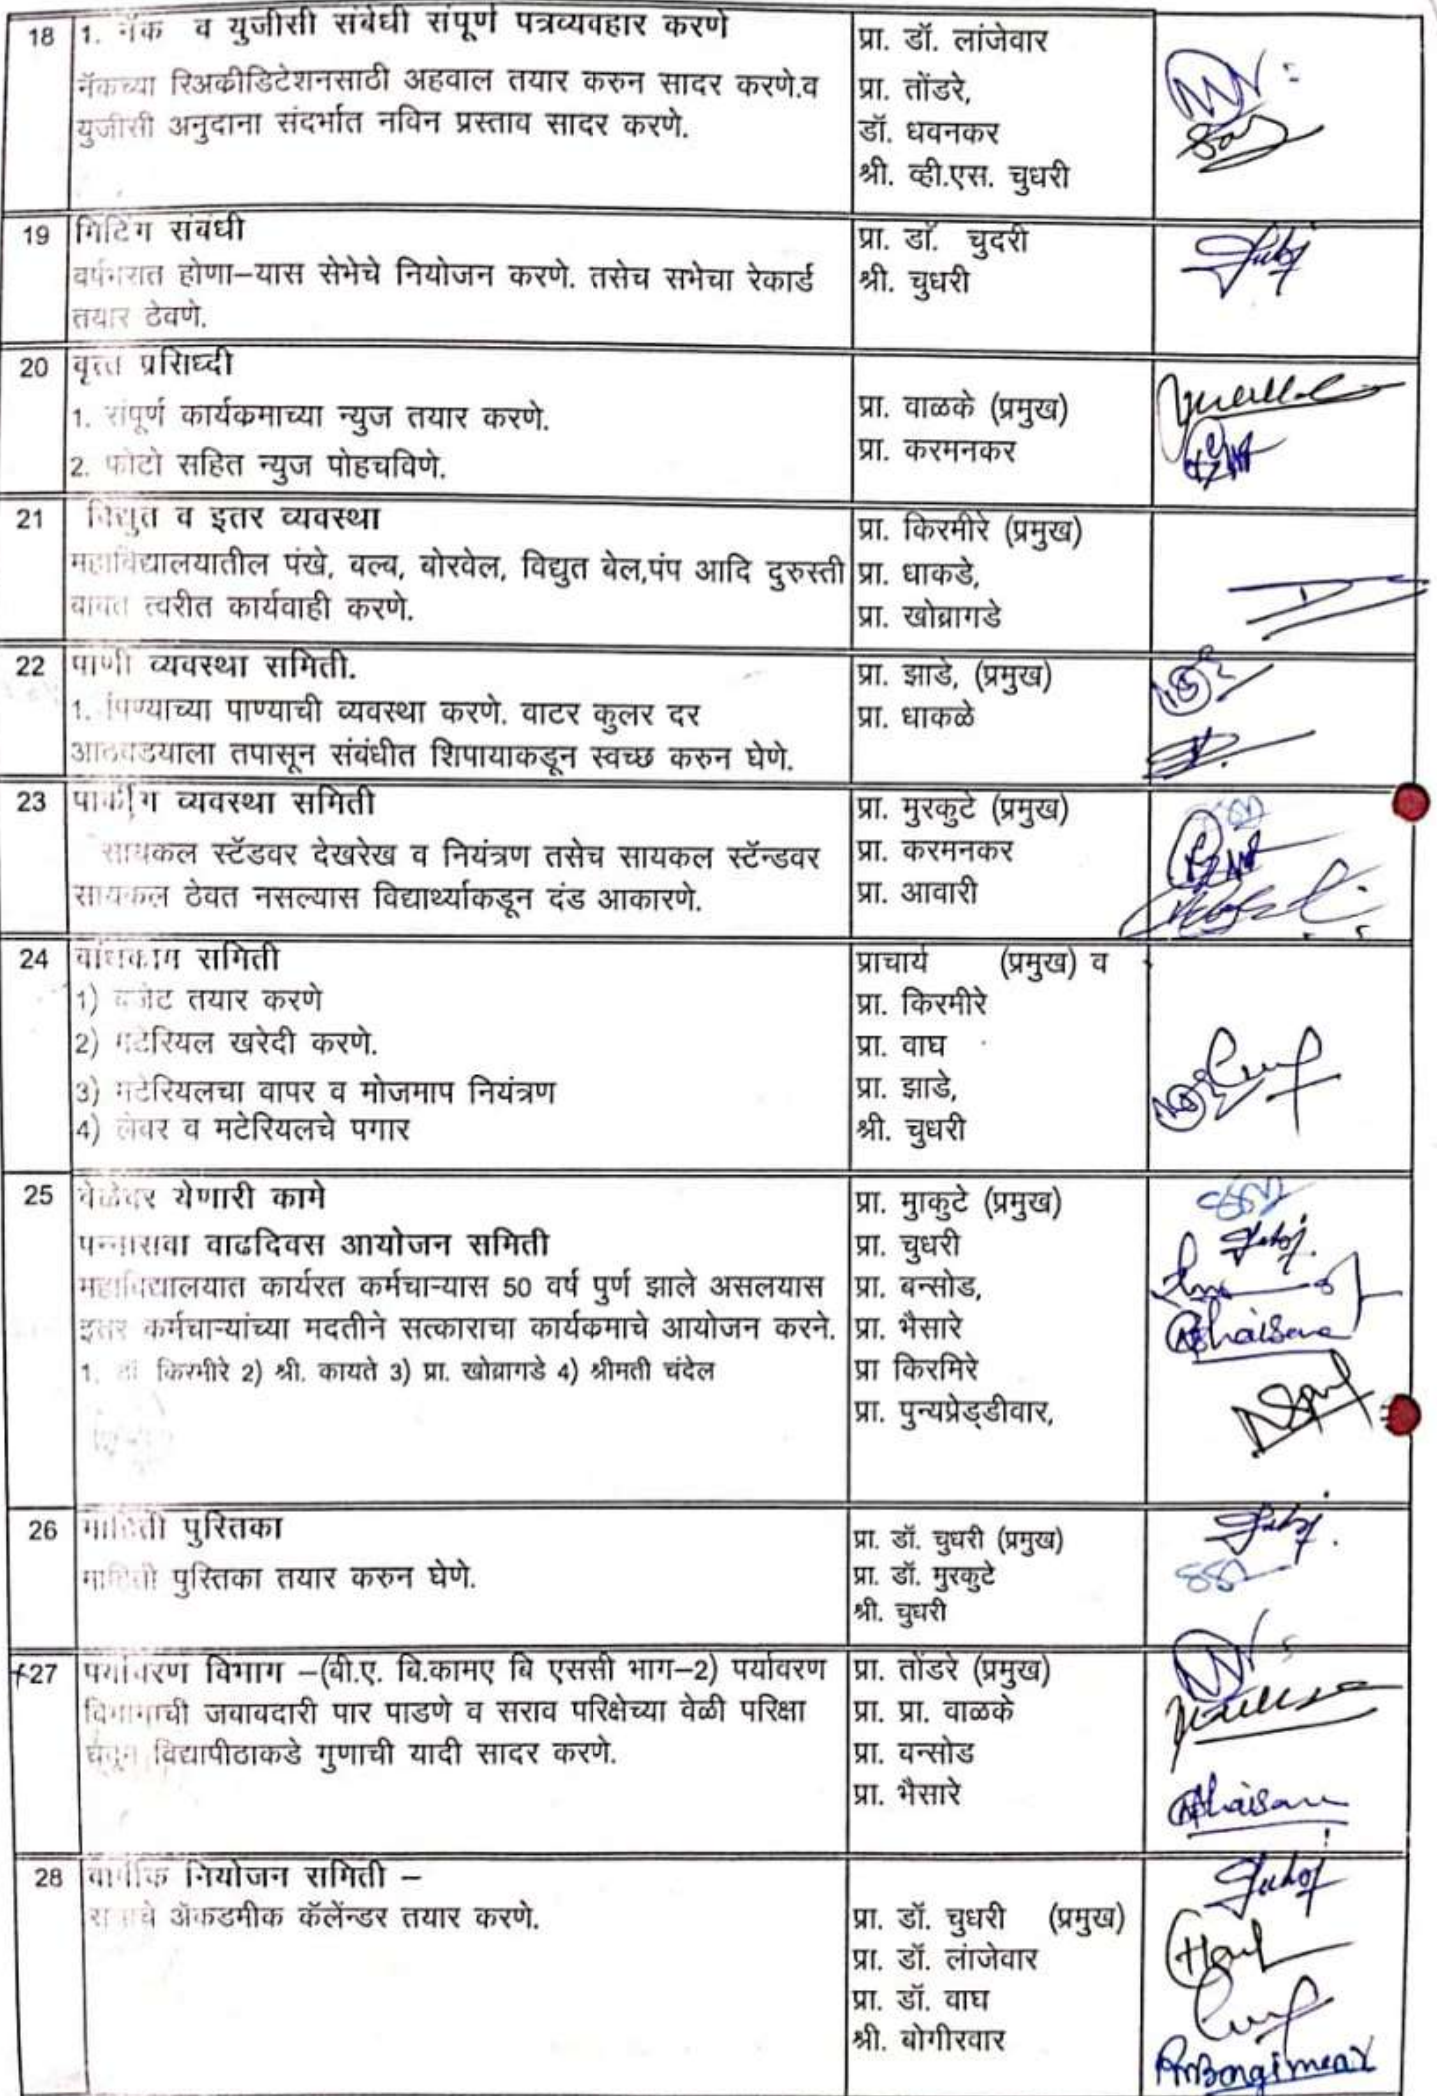 18 1. नॅक व युजीसी संबंधी संपूर्ण पत्रव्यवहार करणे
नॅकच्या रिअक्रीडिटेशनसाठी अहवाल तयार करुन सादर करणे.व
युजीसी अनुदाना संदर्भात नविन प्रस्ताव सादर करणे.
प्रा. डॉ. लांजेवार
प्रा. तोंडरे,
डॉ. धवनकर
श्री. व्ही.एस. चुधरी
19 मिटिंग संबंधी
वर्षभरात होणा–यास सेभेचे नियोजन करणे. तसेच सभेचा रेकार्ड
तयार ठेवणे.
प्रा. डॉ. चुदरी
श्री. चुधरी
20 वृत्त प्रसिध्दी
1. संपूर्ण कार्यकमाच्या न्युज तयार करणे.
2. फोटो सहित न्युज पोहचविणे.
प्रा. वाळके (प्रमुख)
प्रा. करमनकर
21 विद्युत व इतर व्यवस्था
महाविद्यालयातील पंखे, बल्ब, बोरवेल, विद्युत बेल,पंप आदि दुरुस्ती
बाबत त्वरीत कार्यवाही करणे.
प्रा. किरमीरे (प्रमुख)
प्रा. धाकडे,
प्रा. खोब्रागडे
22 पाणी व्यवस्था समिती.
1. पिण्याच्या पाण्याची व्यवस्था करणे. वाटर कुलर दर
आठवडयाला तपासून संबंधीत शिपायाकडून स्वच्छ करुन घेणे.
प्रा. झाडे, (प्रमुख)
प्रा. धाकळे
23 पार्कींग व्यवस्था समिती
सायकल स्टॅडवर देखरेख व नियंत्रण तसेच सायकल स्टॅन्डवर
सायकल ठेवत नसल्यास विद्यार्थ्याकडून दंड आकारणे.
प्रा. मुरकुटे (प्रमुख)
प्रा. करमनकर
प्रा. आवारी
24 बांधकाम समिती
1) बजेट तयार करणे
2) मटेरियल खरेदी करणे.
3) मटेरियलचा वापर व मोजमाप नियंत्रण
4) लेबर व मटेरियलचे पगार
प्राचार्य (प्रमुख) व
प्रा. किरमीरे
प्रा. वाघ
प्रा. झाडे,
श्री. चुधरी
25 वेळेवर येणारी कामे
पन्नासवा वाढदिवस आयोजन समिती
महाविद्यालयात कार्यरत कर्मचाऱ्यास 50 वर्ष पुर्ण झाले असलयास
इतर कर्मचाऱ्यांच्या मदतीने सत्काराचा कार्यकमाचे आयोजन करने.
1. डॉ किरमीरे 2) श्री. कायते 3) प्रा. खोब्रागडे 4) श्रीमती चंदेल
प्रा. मुाकुटे (प्रमुख)
प्रा. चुधरी
प्रा. बन्सोड,
प्रा. भैसारे
प्रा किरमिरे
प्रा. पुन्यप्रेड्डीवार,
Bhaisare
26 माहिती पुस्तिका
माहिती पुस्तिका तयार करुन घेणे.
प्रा. डॉ. चुधरी (प्रमुख)
प्रा. डॉ. मुरकुटे
श्री. चुधरी
27 पर्यावरण विभाग –(बी.ए. बि.कामए बि एससी भाग–2) पर्यावरण
विभागाची जबाबदारी पार पाडणे व सराव परिक्षेच्या वेळी परिक्षा
घेवून विद्यापीठाकडे गुणाची यादी सादर करणे.
प्रा. तोंडरे (प्रमुख)
प्रा. प्रा. वाळके
प्रा. वन्सोड
प्रा. भैसारे
28 वार्षीक नियोजन समिती –
सत्राचे ॲकडमीक कॅलेंन्डर तयार करणे.
प्रा. डॉ. चुधरी (प्रमुख)
प्रा. डॉ. लांजेवार
प्रा. डॉ. वाघ
श्री. बोगीरवार